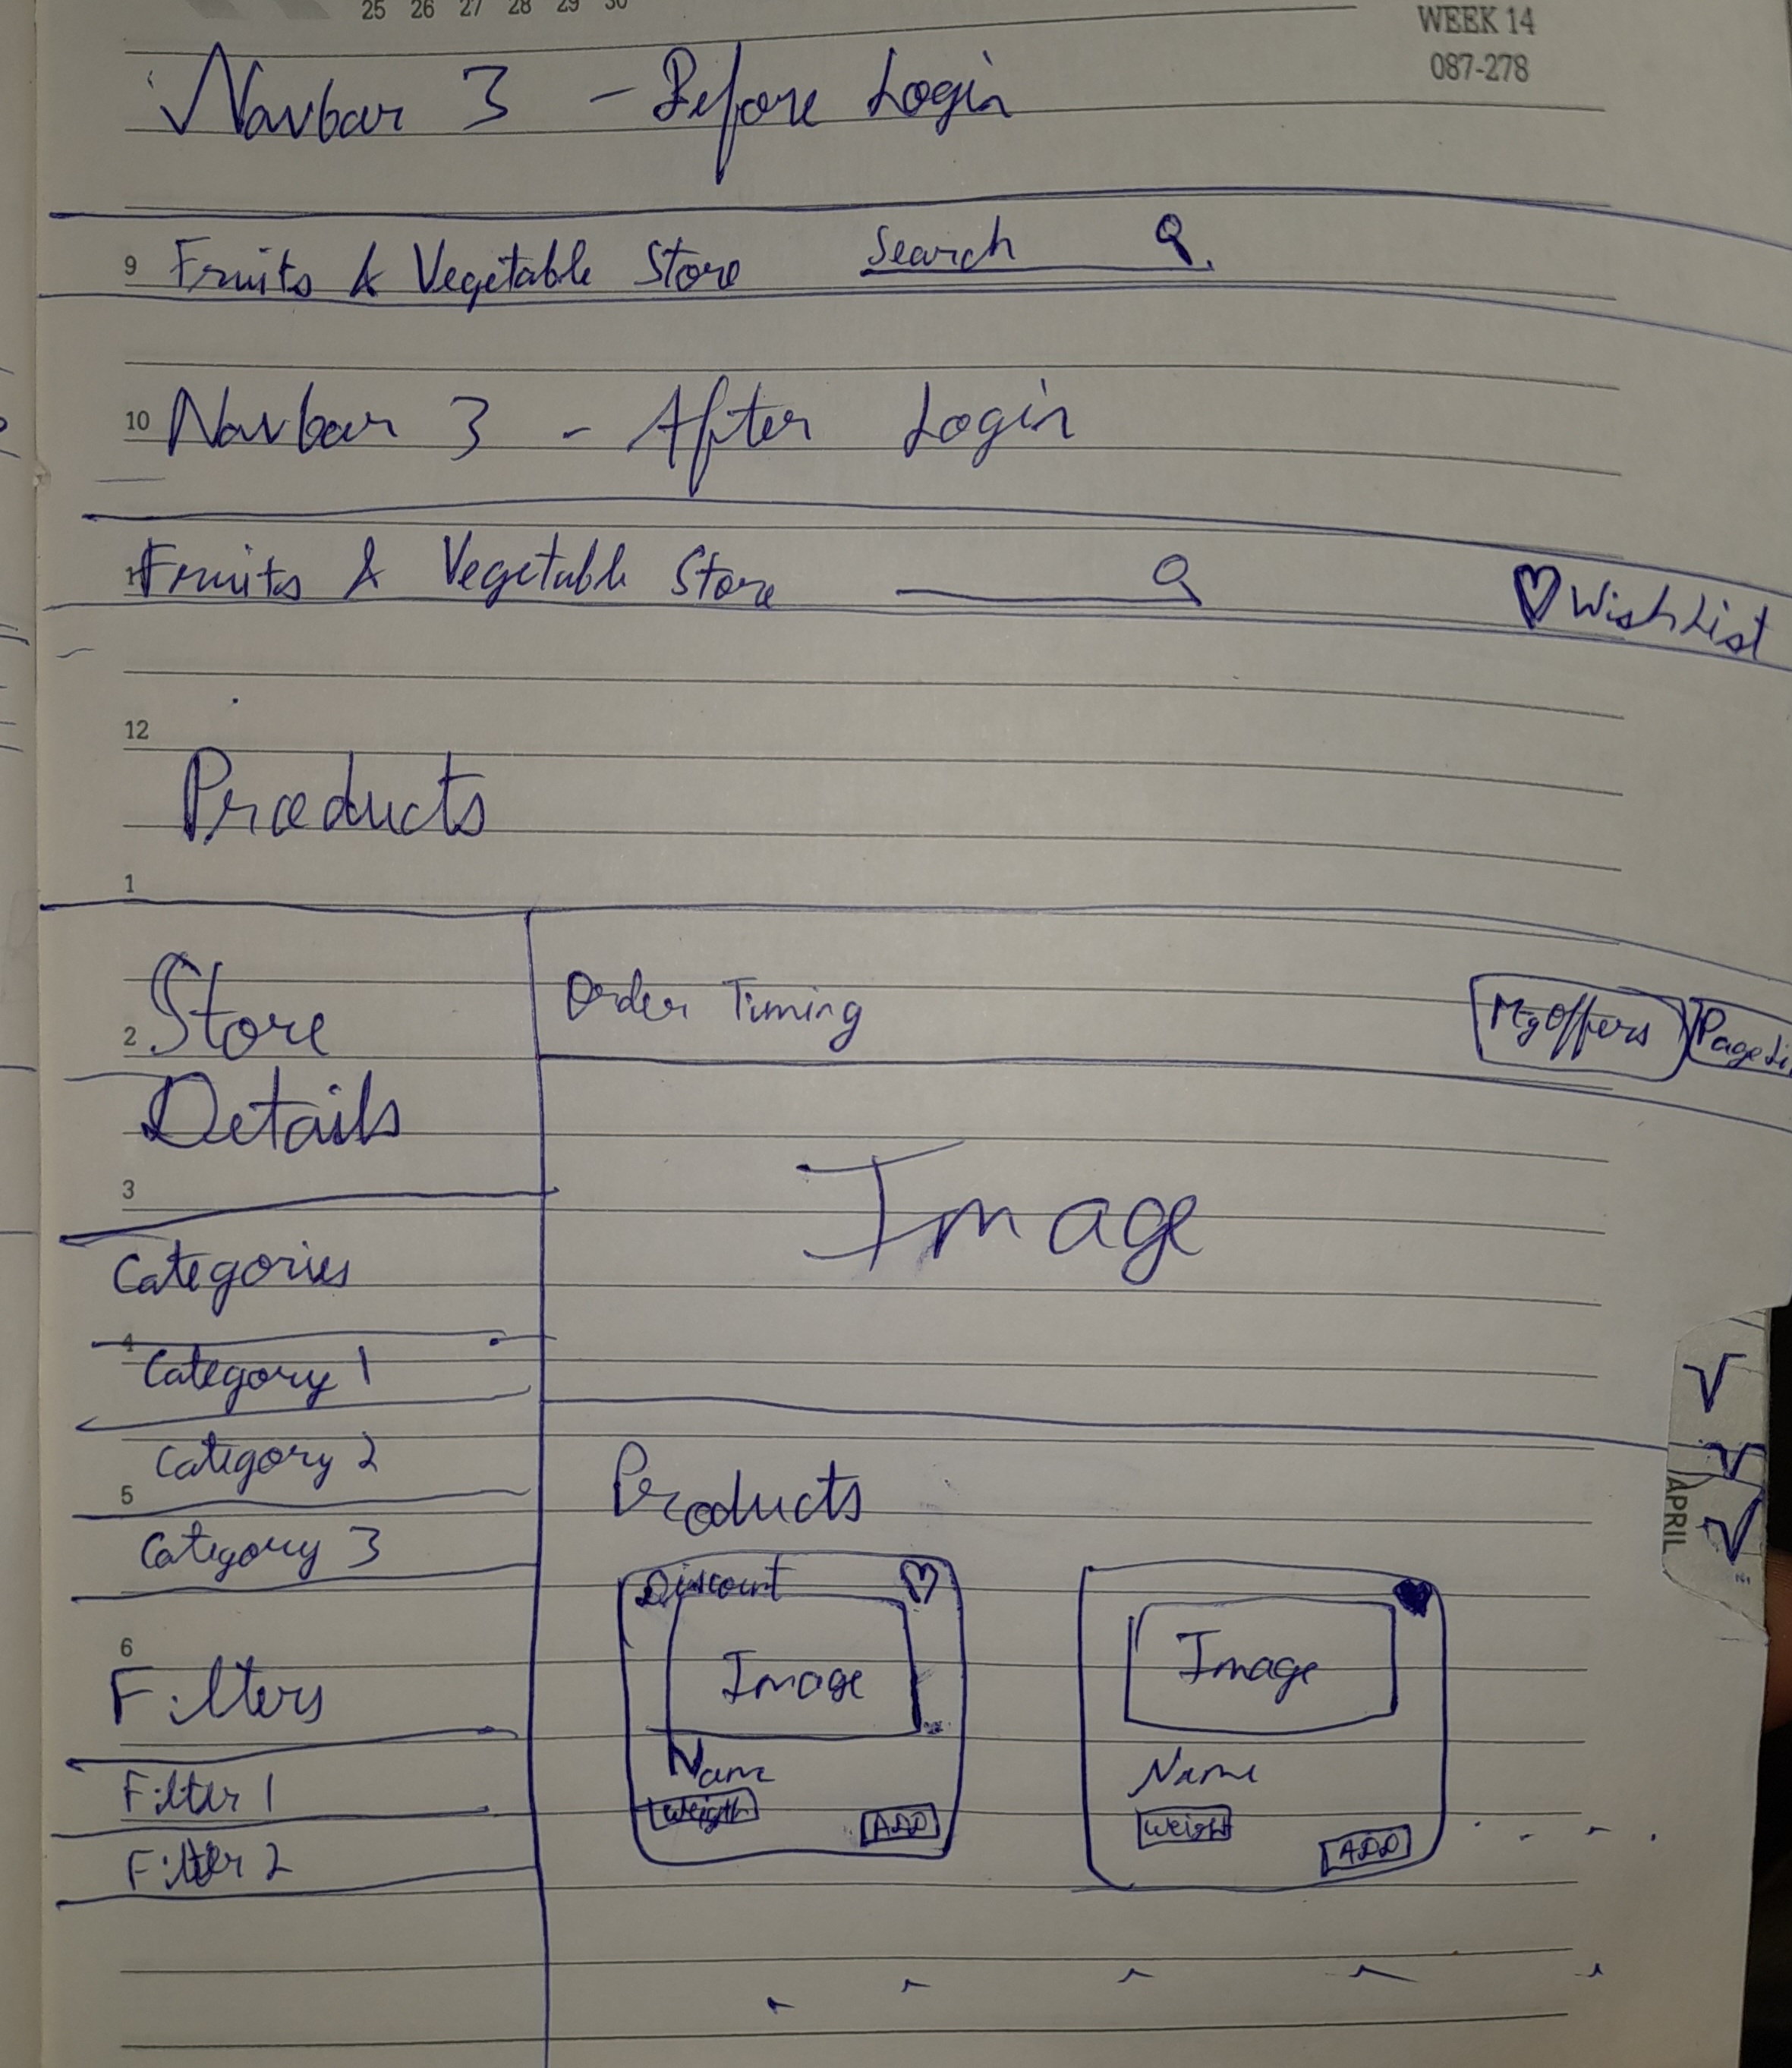 25 26 27 28 29 30
WEEK 14
087-278
Navbar 3 - Before Login
9 Fruits & Vegetable Store Search
10 Navbar 3 - After Login
Fruits & Vegetable Store WishList
12
Products
1
Store
Details
2
3
Order Timing My Offers
Image
Categories
4
Category 1
Category 2
5
Category 3
6
Filters
Filter 1
Filter 2
Products
Discount
Image
Name
Weigth
ADD
Image
Name
Weight
ADD
APRIL